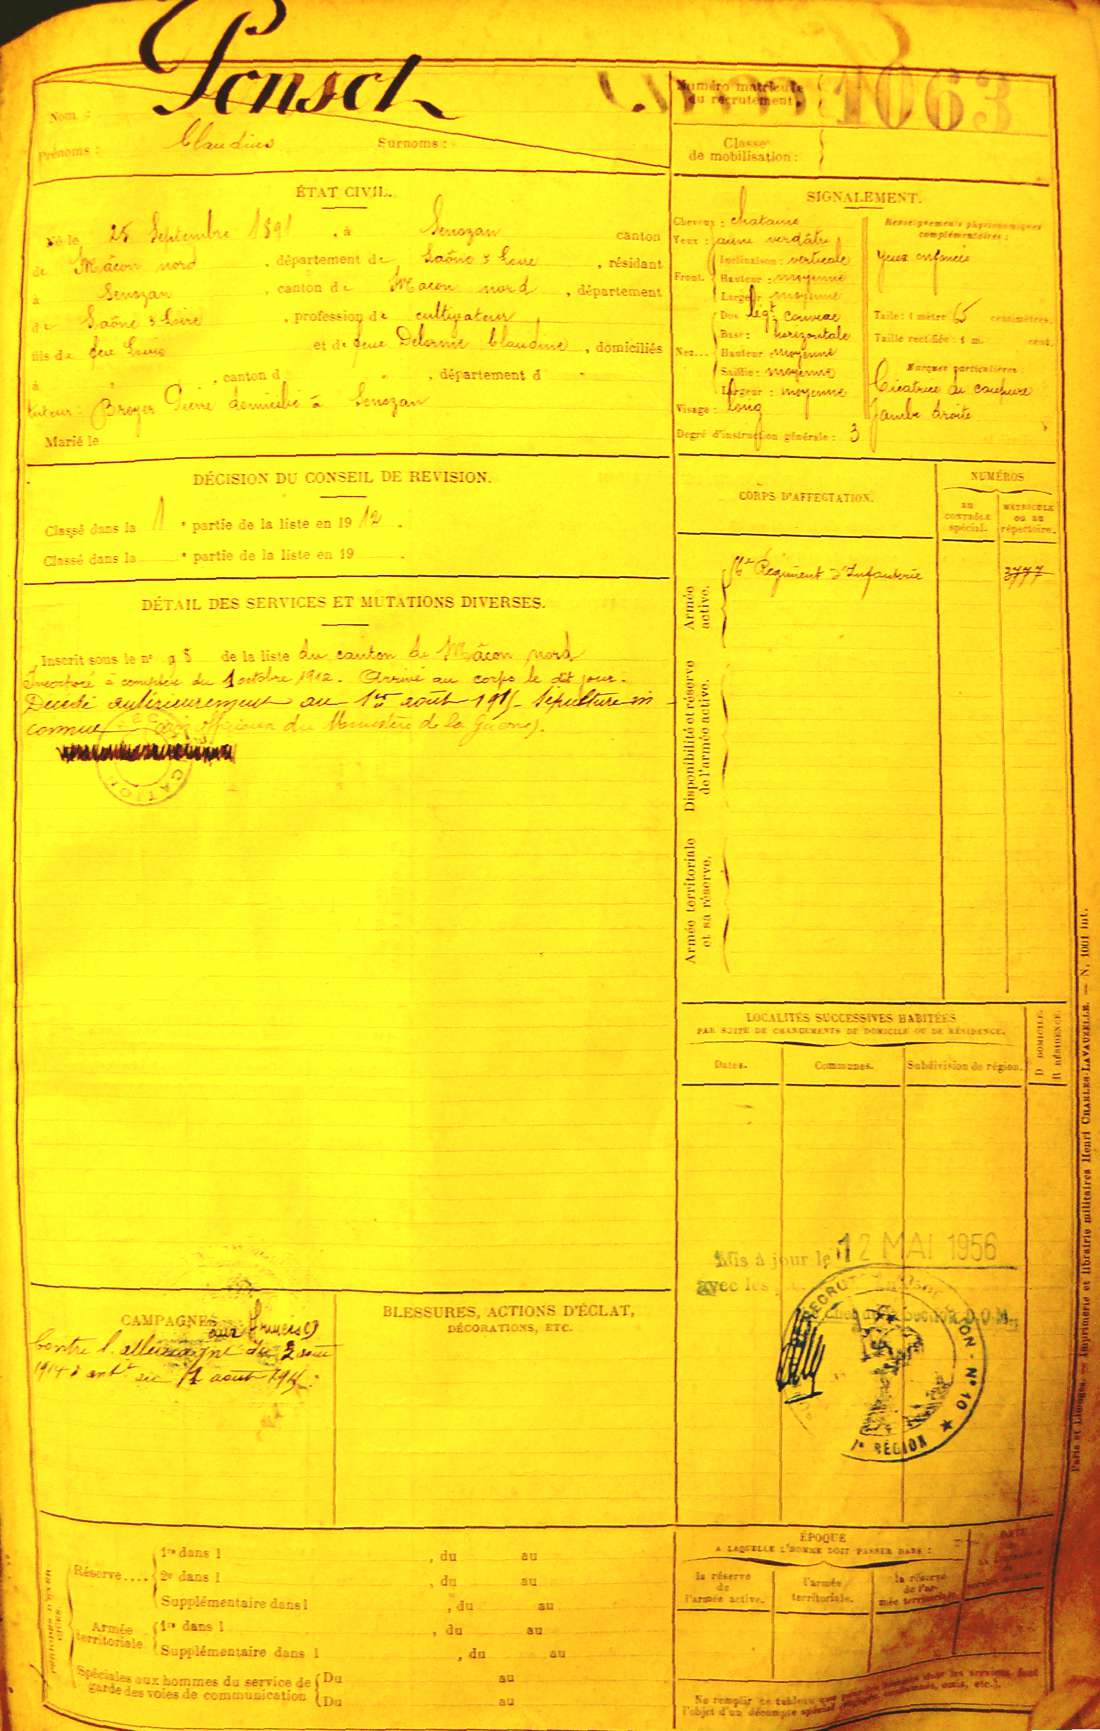 Nom :
Ponsot
Prénoms : Claudius Surnoms :
Numéro matricule
du recrutement : 1063
Classe
de mobilisation :
ÉTAT CIVIL.
Né le 25 Septembre 1891, à Senozan canton
de Mâcon nord, département de Saône & Loire, résidant
à Senozan, canton de Macon nord, département
de Saône & Loire, profession de cultivateur
fils de feu Louis et de feue Delorme Claudine, domiciliés
à , canton d , département d
tuteur : Broyer Pierre domicilié à Senozan
Marié le
SIGNALEMENT.
Cheveux : chatains
Yeux : jaune verdâtre
Front. Inclinaison : verticale
Hauteur : moyenne
Largeur : moyenne
Nez... Dos légt convexe
Base : horizontale
Hauteur : moyenne
Saillie : moyenne
Largeur : moyenne
Visage : long
Degré d'instruction générale : 3
Renseignements physionomiques
complémentaires :
Yeux enfoncés
Taille : 1 mètre 65 centimètres.
Taille rectifiée : 1 m. cent.
Marques particulières :
Cicatrice de coupure
Jambe droite
DÉCISION DU CONSEIL DE REVISION.
Classé dans la 1 e partie de la liste en 1912.
Classé dans la e partie de la liste en 19 .
DÉTAIL DES SERVICES ET MUTATIONS DIVERSES.
Inscrit sous le n° 98 de la liste du canton de Mâcon nord
Incorporé à compter du 1 octobre 1912. Arrivé au corps le dit jour.
Décédé antérieurement au 1er août 1915 - Sépulture in-
connue (avis officieux du Ministère de la Guerre).
CORPS D'AFFECTATION.
NUMÉROS
AU
CONTRÔLE
spécial.
MATRICULE
OU AU
répertoire.
Armée
active.
Régiment d'Infanterie
3777
Disponibilité et réserve
de l'armée active.
Armée territoriale
et sa réserve.
LOCALITÉS SUCCESSIVES HABITÉES
PAR SUITE DE CHANGEMENTS DE DOMICILE OU DE RÉSIDENCE.
Dates.
Communes.
Subdivision de région.
D DOMICILE.
R RÉSIDENCE.
Mis à jour le 12 MAI 1956
avec les
RECRUT
ION - N° 10 ★
RÉGION
CAMPAGNES
aux Armées
Contre l'allemagne du 2 août
1914 à antt au 1 août 1915.
BLESSURES, ACTIONS D'ÉCLAT,
DÉCORATIONS, ETC.
Réserve....
1re dans l , du au
2e dans l , du au
Supplémentaire dans l , du au
Armée
territoriale
1re dans l , du au
Supplémentaire dans l , du au
Spéciales aux hommes du service de
garde des voies de communication
Du au
Du au
ÉPOQUE
A LAQUELLE L'HOMME DOIT PASSER DANS :
la réserve
de
l'armée active.
l'armée
territoriale.
la réserve
de l'ar-
mée territoriale.
DATE
Paris et Limoges. — Imprimerie et librairie militaires Henri CHARLES-LAVAUZELLE. — N. 1001 int.